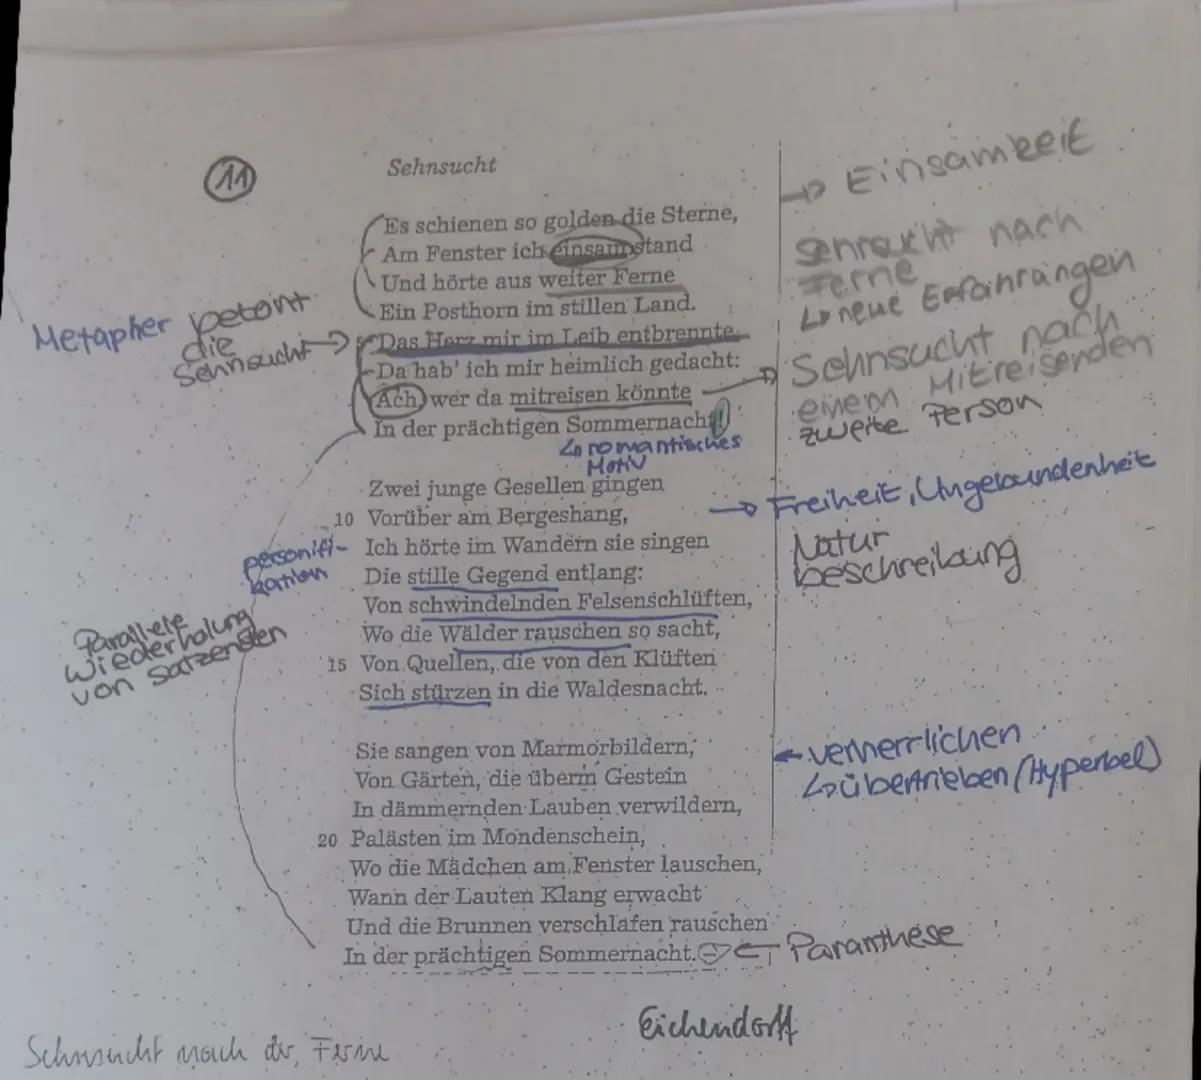 11
Sehnsucht
Es schienen so golden die Sterne,
Am Fenster ich einsam stand
Und hörte aus weiter Ferne
Ein Posthorn im stillen Land.
Das Herz mir im Leib entbrennte,
Da hab' ich mir heimlich gedacht:
Ach wer da mitreisen könnte
In der prächtigen Sommernacht!
↳ romantisches
Motiv
Zwei junge Gesellen gingen
10 Vorüber am Bergeshang,
Ich hörte im Wandern sie singen
Die stille Gegend entlang:
Von schwindelnden Felsenschlüften,
Wo die Wälder rauschen so sacht,
15 Von Quellen, die von den Klüften
Sich stürzen in die Waldesnacht.
Sie sangen von Marmorbildern,
Von Gärten, die überm Gestein
In dämmernden Lauben verwildern,
20 Palästen im Mondenschein,
Wo die Mädchen am Fenster lauschen,
Wann der Lauten Klang erwacht
Und die Brunnen verschlafen rauschen
In der prächtigen Sommernacht. –
Metapher betont
die
Sehnsucht →
personifi-
kation
Parallele
Wiederholung
von Satzenden
→ Einsamkeit
Sehnsucht nach
Ferne
↳ neue Erfahrungen
Sehnsucht nach
einem Mitreisenden
zweite Person
→ Freiheit, Ungebundenheit
Natur
beschreibung
← verherrlichen
↳ übertrieben (Hyperbel)
← Paranthese
Eichendorff
Sehnsucht nach der Ferne